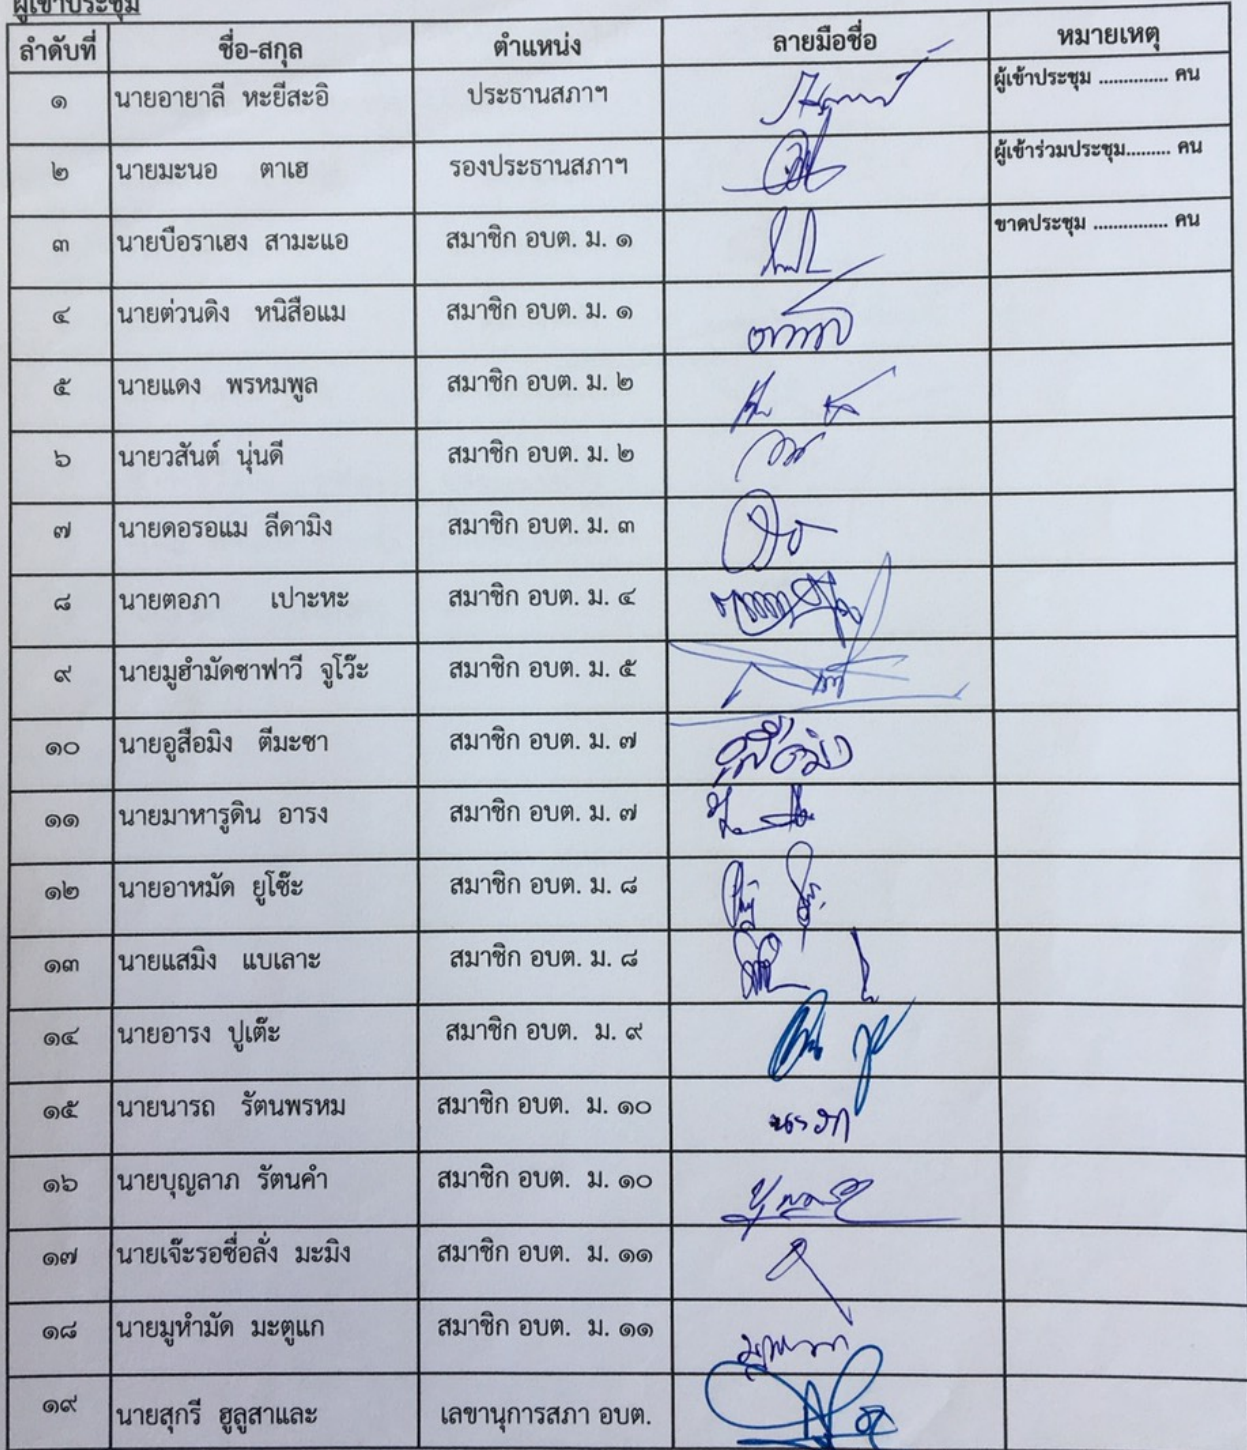 ผู้เข้าประชุม
ลำดับที่ ชื่อ-สกุล ตำแหน่ง ลายมือชื่อ หมายเหตุ
๑ นายอายาลี หะยีสะอิ ประธานสภาฯ ผู้เข้าประชุม .............. คน
๒ นายมะนอ ตาเฮ รองประธานสภาฯ ผู้เข้าร่วมประชุม......... คน
๓ นายบือราเฮง สามะแอ สมาชิก อบต. ม. ๑ ขาดประชุม ............... คน
๔ นายต่วนดิง หนิสือแม สมาชิก อบต. ม. ๑
๕ นายแดง พรหมพูล สมาชิก อบต. ม. ๒
๖ นายวสันต์ นุ่นดี สมาชิก อบต. ม. ๒
๗ นายดอรอแม ลีดามิง สมาชิก อบต. ม. ๓
๘ นายตอภา เปาะหะ สมาชิก อบต. ม. ๔
๙ นายมูฮำมัดซาฟาวี จูโว๊ะ สมาชิก อบต. ม. ๕
๑๐ นายอูสือมิง ตีมะซา สมาชิก อบต. ม. ๗ อูสือมิง
๑๑ นายมาหารูดิน อารง สมาชิก อบต. ม. ๗
๑๒ นายอาหมัด ยูโซ๊ะ สมาชิก อบต. ม. ๘
๑๓ นายแสมิง แบเลาะ สมาชิก อบต. ม. ๘
๑๔ นายอารง ปูเต๊ะ สมาชิก อบต. ม. ๙
๑๕ นายนารถ รัตนพรหม สมาชิก อบต. ม. ๑๐
๑๖ นายบุญลาภ รัตนคำ สมาชิก อบต. ม. ๑๐
๑๗ นายเจ๊ะรอซื่อลั่ง มะมิง สมาชิก อบต. ม. ๑๑
๑๘ นายมูหำมัด มะตูแก สมาชิก อบต. ม. ๑๑
๑๙ นายสุกรี ฮูลูสาและ เลขานุการสภา อบต.